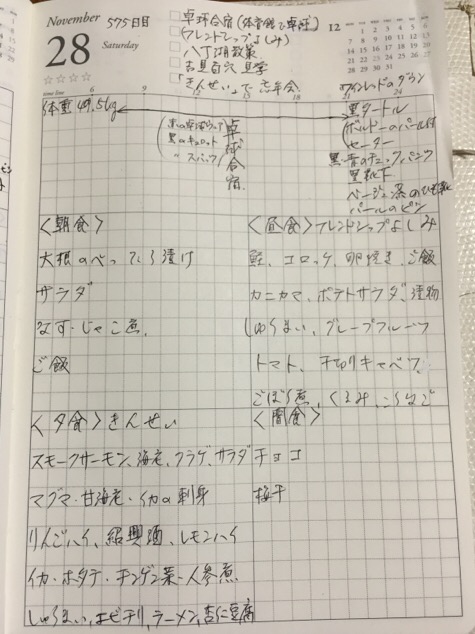 November 575日目
28 Saturday
□卓球合宿(体育館で卓球)
(フレンドシップよしみ)
□八丁湖散策
□吉見百穴見学
「きんせい」で忘年会
12
time line 6 9 12 15 18 21 24
体重49.5kg
卓球合宿
ワインレッドのダウン
黒タートル
ボルドーのパール付
セーター
黒・青のチェックパンツ
黒靴下
ベージュ系のひも靴
パールのピン
黒のキュロット
〃 スパッツ
<朝食>
大根のべったら漬け
サラダ
なす・じゃこ煮、
ご飯
<昼食>フレンドシップよしみ
鮭、コロッケ、卵焼き、ご飯
カニカマ、ポテトサラダ、漬物
しゅうまい、グレープフルーツ
トマト、千切りキャベツ、
ごぼう煮、くるみ、こうなご
<夕食>きんせい
スモークサーモン、海老、クラゲ、サラダ
マグロ・甘海老・イカの刺身
りんごハイ、紹興酒、レモンハイ
イカ・ホタテ・チンゲン菜・人参煮
しゅうまい、エビチリ、ラーメン、杏仁豆腐
<間食>
チョコ
梅干